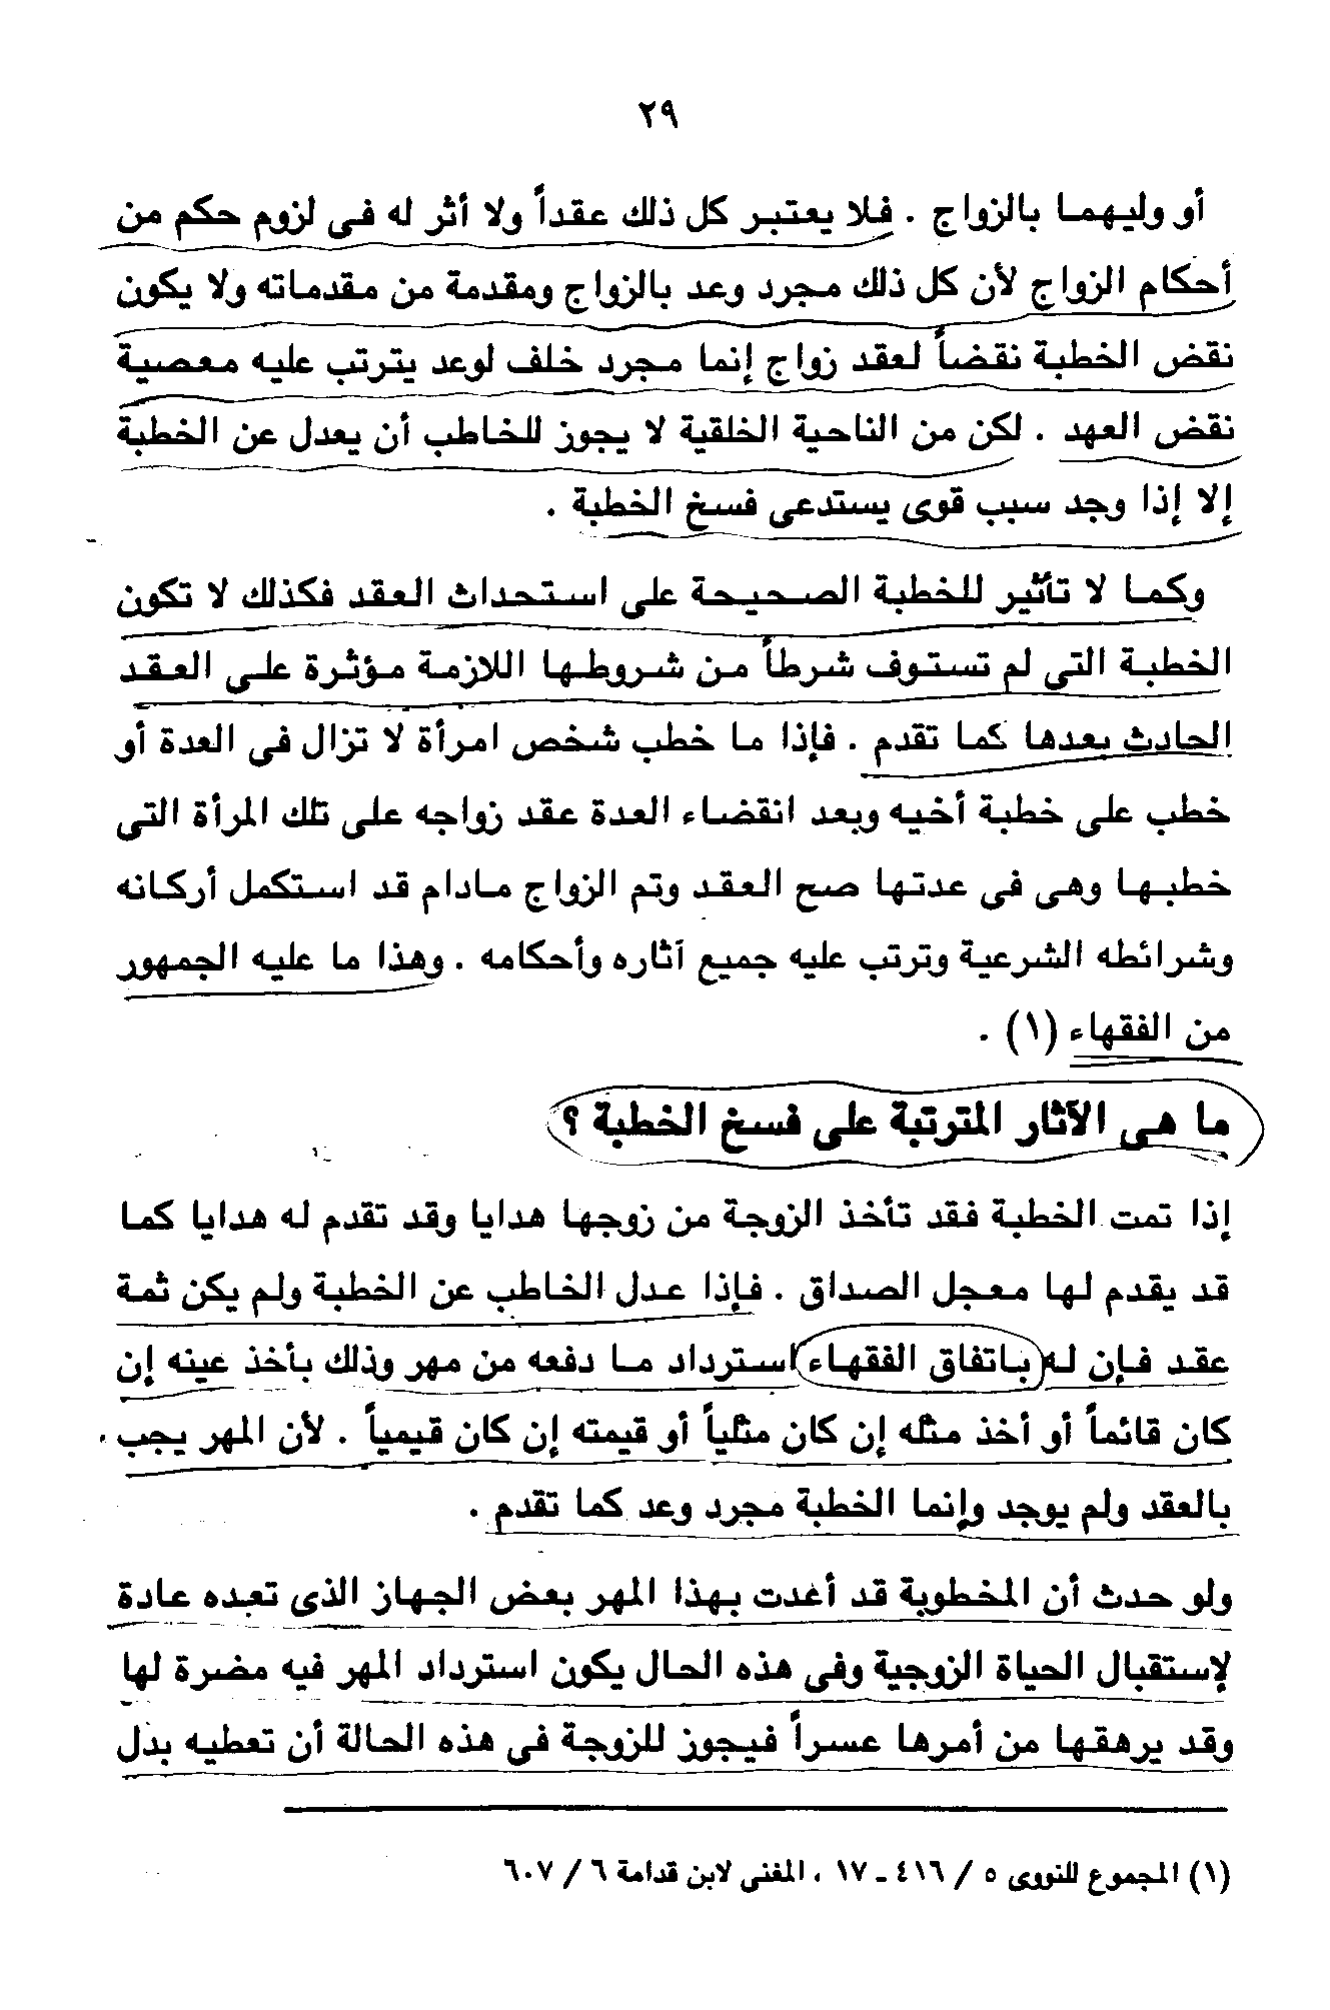 ٢٩
أو وليهما بالزواج . فلا يعتبر كل ذلك عقداً ولا أثر له فى لزوم حكم من
أحكام الزواج لأن كل ذلك مجرد وعد بالزواج ومقدمة من مقدماته ولا يكون
نقض الخطبة نقضاً لعقد زواج إنما مجرد خلف لوعد يترتب عليه معصية
نقض العهد . لكن من الناحية الخلقية لا يجوز للخاطب أن يعدل عن الخطبة
إلا إذا وجد سبب قوى يستدعى فسخ الخطبة .
وكما لا تأثير للخطبة الصحيحة على استحداث العقد فكذلك لا تكون
الخطبة التى لم تستوف شرطاً من شروطها اللازمة مؤثرة على العقد
الحادث بعدها كما تقدم . فإذا ما خطب شخص امرأة لا تزال فى العدة أو
خطب على خطبة أخيه وبعد انقضاء العدة عقد زواجه على تلك المرأة التى
خطبها وهى فى عدتها صح العقد وتم الزواج مادام قد استكمل أركانه
وشرائطه الشرعية وترتب عليه جميع آثاره وأحكامه . وهذا ما عليه الجمهور
من الفقهاء (١) .
ما هى الآثار المترتبة على فسخ الخطبة ؟
إذا تمت الخطبة فقد تأخذ الزوجة من زوجها هدايا وقد تقدم له هدايا كما
قد يقدم لها معجل الصداق . فإذا عدل الخاطب عن الخطبة ولم يكن ثمة
عقد فإن له باتفاق الفقهاء استرداد ما دفعه من مهر وذلك بأخذ عينه إن
كان قائماً أو أخذ مثله إن كان مثلياً أو قيمته إن كان قيمياً . لأن المهر يجب
بالعقد ولم يوجد وإنما الخطبة مجرد وعد كما تقدم .
ولو حدث أن المخطوبة قد أغدت بهذا المهر بعض الجهاز الذى تعده عادة
لإستقبال الحياة الزوجية وفى هذه الحال يكون استرداد المهر فيه مضرة لها
وقد يرهقها من أمرها عسراً فيجوز للزوجة فى هذه الحالة أن تعطيه بدل
(١) المجموع للنووى ٥ / ٤١٦ ـ ١٧ ، المغنى لابن قدامة ٦ / ٦٠٧